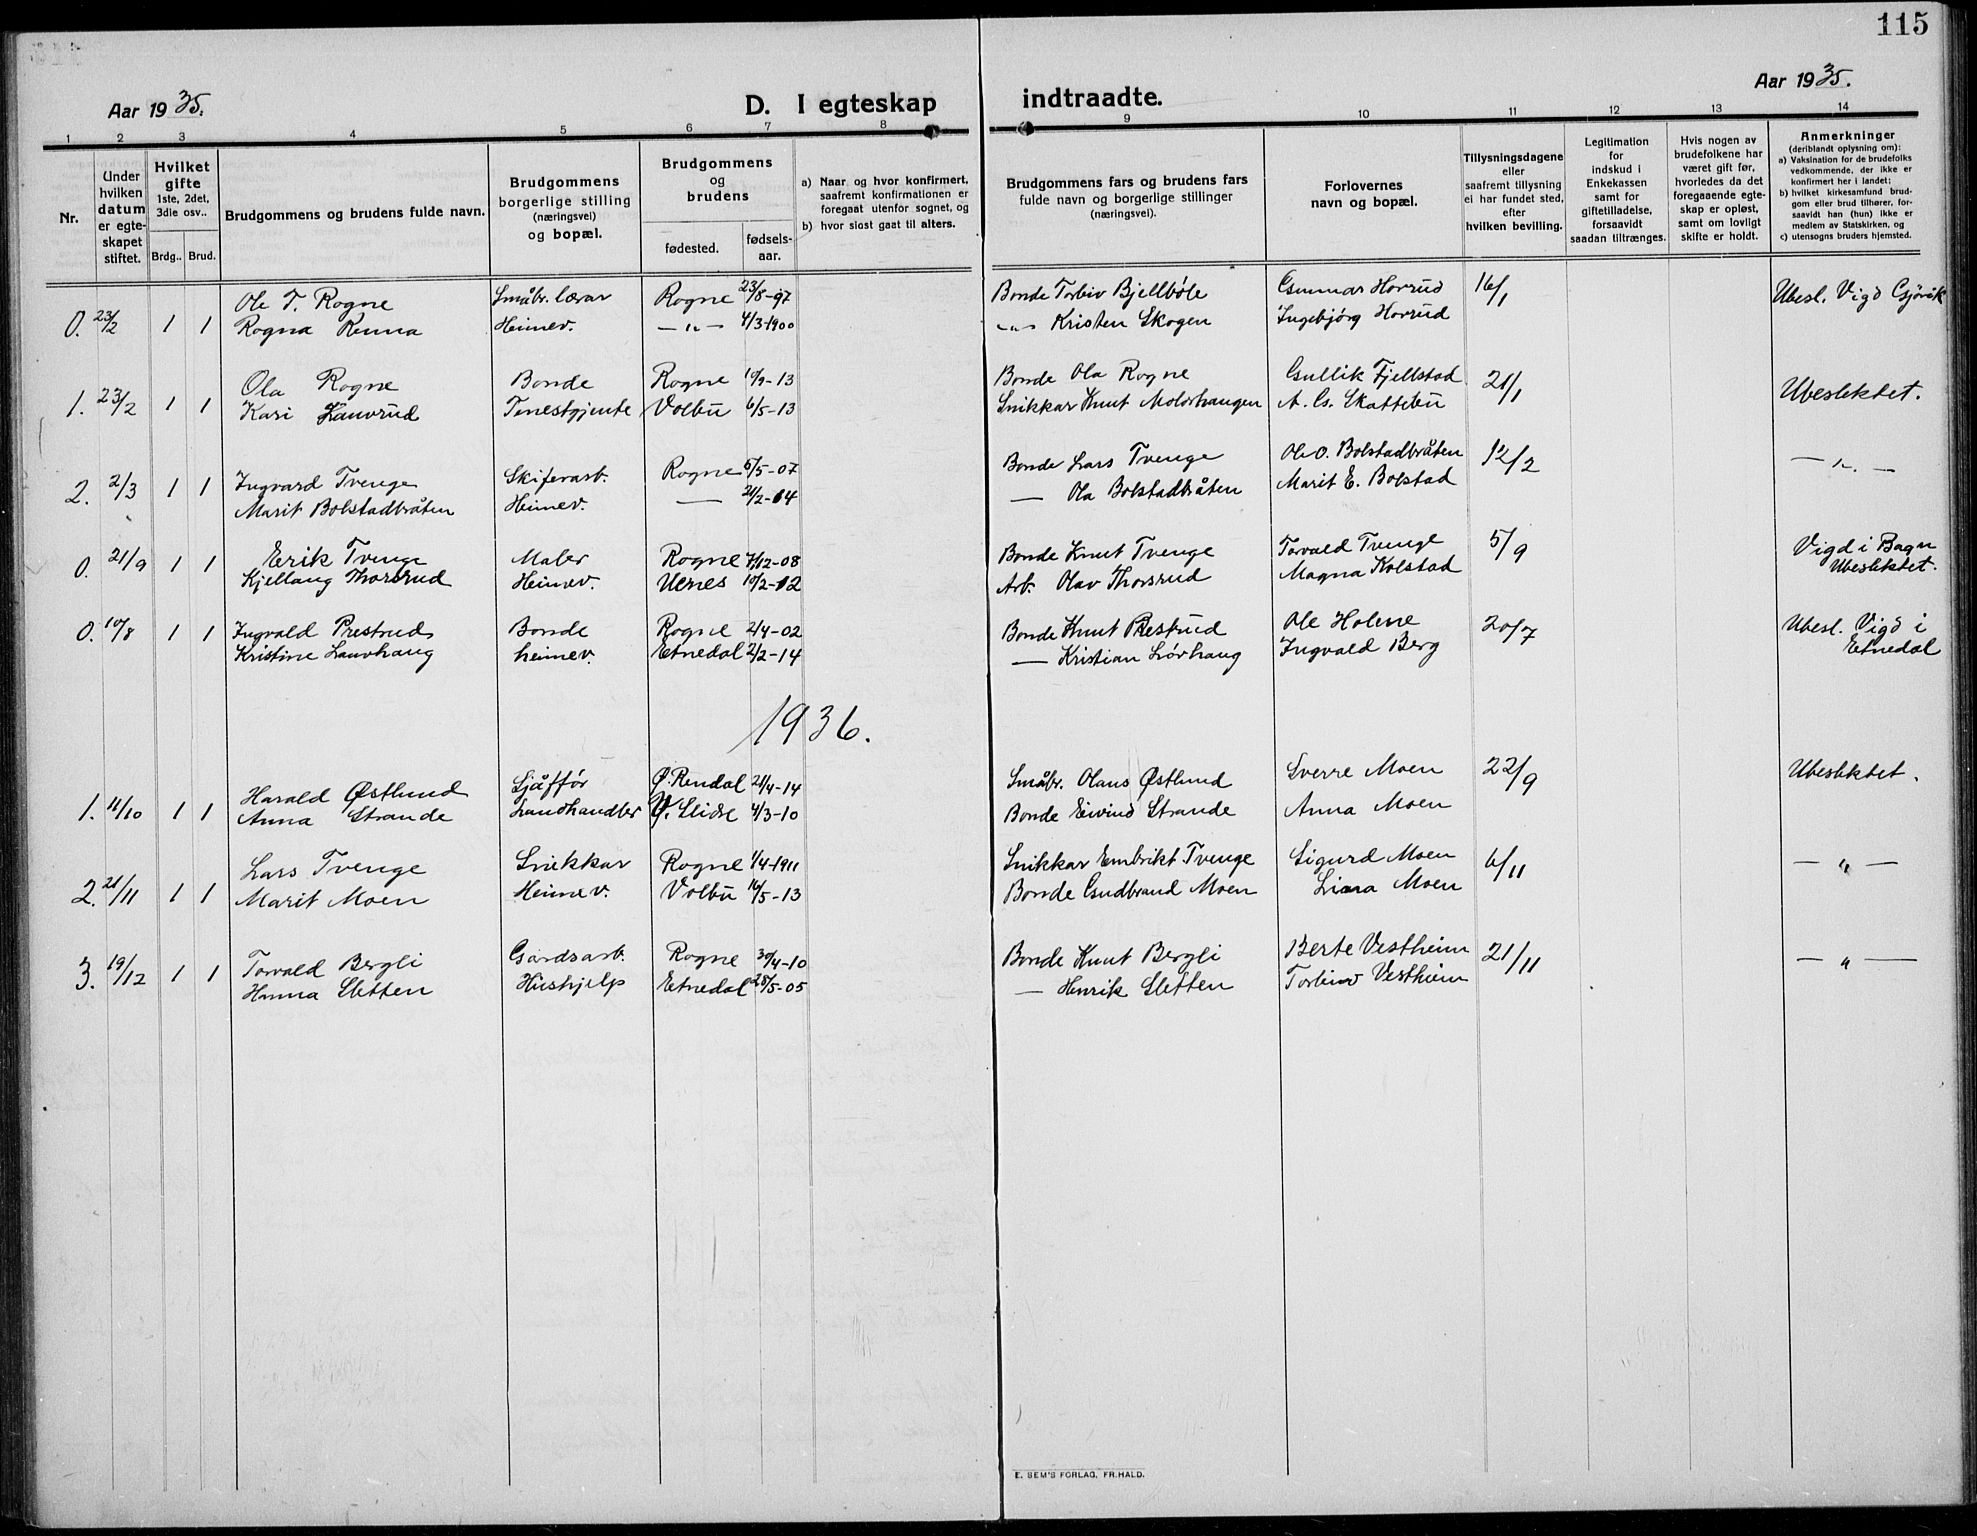 115
Aar 1935.
D. I egteskap
indtraadte.
Aar 1935.
1 2 3 4 5 6 7 8 9 10 11 12 13 14
Nr.
Under hvilken datum er egteskapet stiftet.
Hvilket gifte 1ste, 2det, 3die osv..
Brdg.. Brud.
Brudgommens og brudens fulde navn.
Brudgommens borgerlige stilling (næringsvei) og bopæl.
Brudgommens og brudens
fødested. fødsels-aar.
a) Naar og hvor konfirmert, saafremt konfirmationen er foregaat utenfor sognet, og
b) hvor sidst gaat til alters.
Brudgommens fars og brudens fars fulde navn og borgerlige stillinger (næringsvei).
Forlovernes navn og bopæl.
Tillysningsdagene eller saafremt tillysning ei har fundet sted, efter hvilken bevilling.
Legitimation for indskud i Enkekassen samt for giftetilladelse, forsaavidt saadan tiltrænges.
Hvis nogen av brudefolkene har været gift før, hvorledes da det foregaaende egteskap er opløst, samt om lovligt skifte er holdt.
Anmerkninger (deriblandt oplysning om):
a) Vaksination for de brudefolks vedkommende, der ikke er konfirmert her i landet;
b) hvilket kirkesamfund brudgom eller brud tilhører, forsaavidt han (hun) ikke er medlem av Statskirken, og
c) utensogns bruders hjemsted.
0. 23/2 1 1 Ole T. Rogne Småbr. lærar Rogne 23/8-97 Bonde Torbiv Bjellbøle Gunnar Horrud 16/1 Ubesl. Vigd Gjövik
Rogna Renna Heimev. — " — 4/3-1900 — " — Kristen Skogen Ingebjörg Horrud
1. 23/2 1 1 Ola Rogne Bonde Rogne 10/9-13 Bonde Ola Rogne Gullik Fjellstad 21/1 Ubeslektet.
Kari Haugrud Tenestgjente Volbu 6/5-13 Snikkar Knut Molorhaugen A. G. Skattebu
2. 2/3 1 1 Ingvard Tvenge Skiferarb. Rogne 5/5-07 Bonde Lars Tvenge Ole O. Bolstadbråten 12/2 — " —
Marit Bolstadbråten Heimev. — 21/2-14 — Ola Bolstadbråten Marit E. Bolstad
0. 21/9 1 1 Erik Tvenge Maler Rogne 7/12-08 Bonde Knut Tvenge Torvald Tvenge 5/9 Vigd i Bagn
Kjellaug Thorsrud Heimev. Uernes 10/2-12 Arb. Olav Thorsrud Magna Kolstad Ubeslektet.
0. 10/8 1 1 Ingvald Prestrud Bonde Rogne 2/4-02 Bonde Knut Prestrud Ole Holene 20/7 Ubesl. Vigd i
Kristine Lauvhaug heimev. Etnedal 2/2-14 — Kristian Lövhaug Ingvald Berg Etnedal
1936.
1. 11/10 1 1 Harald Østlund Sjåfför Ø. Rendal 21/4-14 Småbr. Olaus Østlund Sverre Moen 22/9 Ubeslektet.
Anna Strande Landhandler V. Slidre 4/3-10 Bonde Eivind Strande Anna Moen
2. 21/11 1 1 Lars Tvenge Snekkar Rogne 1/4-1911 Snikkar Embrikt Tvenge Sigurd Moen 6/11 — " —
Marit Moen Heimev. Volbu 16/5-13 Bonde Gudbrand Moen Liara Moen
3. 19/12 1 1 Torvald Bergli Gårdsarb. Rogne 30/4-10 Bonde Knut Bergli Berte Vestheim 21/11 — " —
Hanna Sletten Hushjelp Etnedal 28/5-05 — Henrik Sletten Torbinv Vestheim
E. SEM'S FORLAG, FR.HALD.